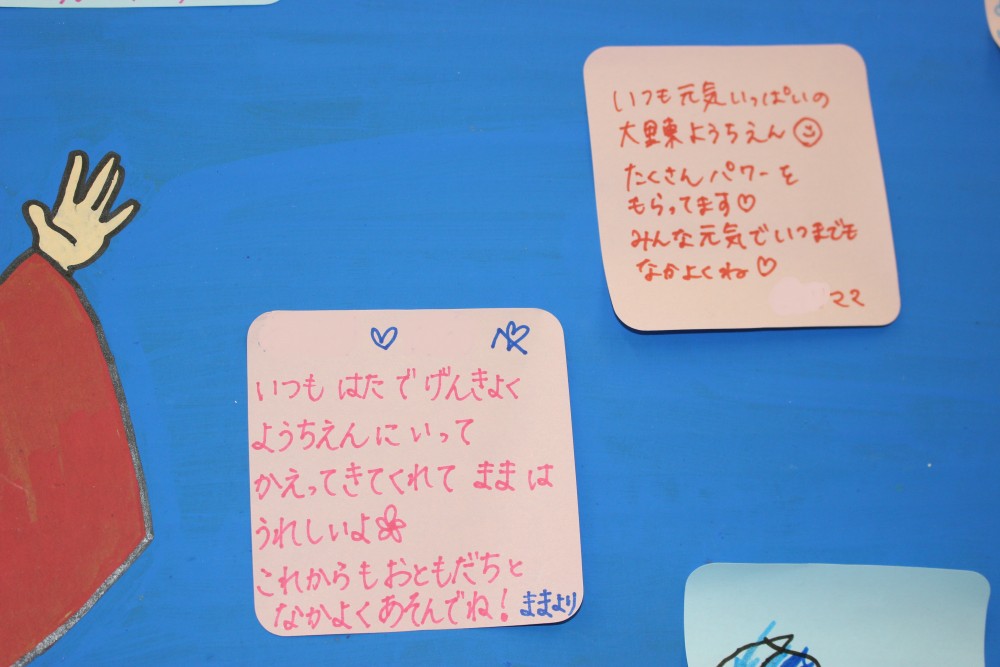 いつも元気いっぱいの
大里東ようちえん
たくさんパワーを
もらってます♡
みんな元気でいつまでも
なかよくね♡
ママ
いつも はたで げんきよく
ようちえんにいって
かえってきてくれて ままは
うれしいよ
これからもおともだちと
なかよくあそんでね! ままより